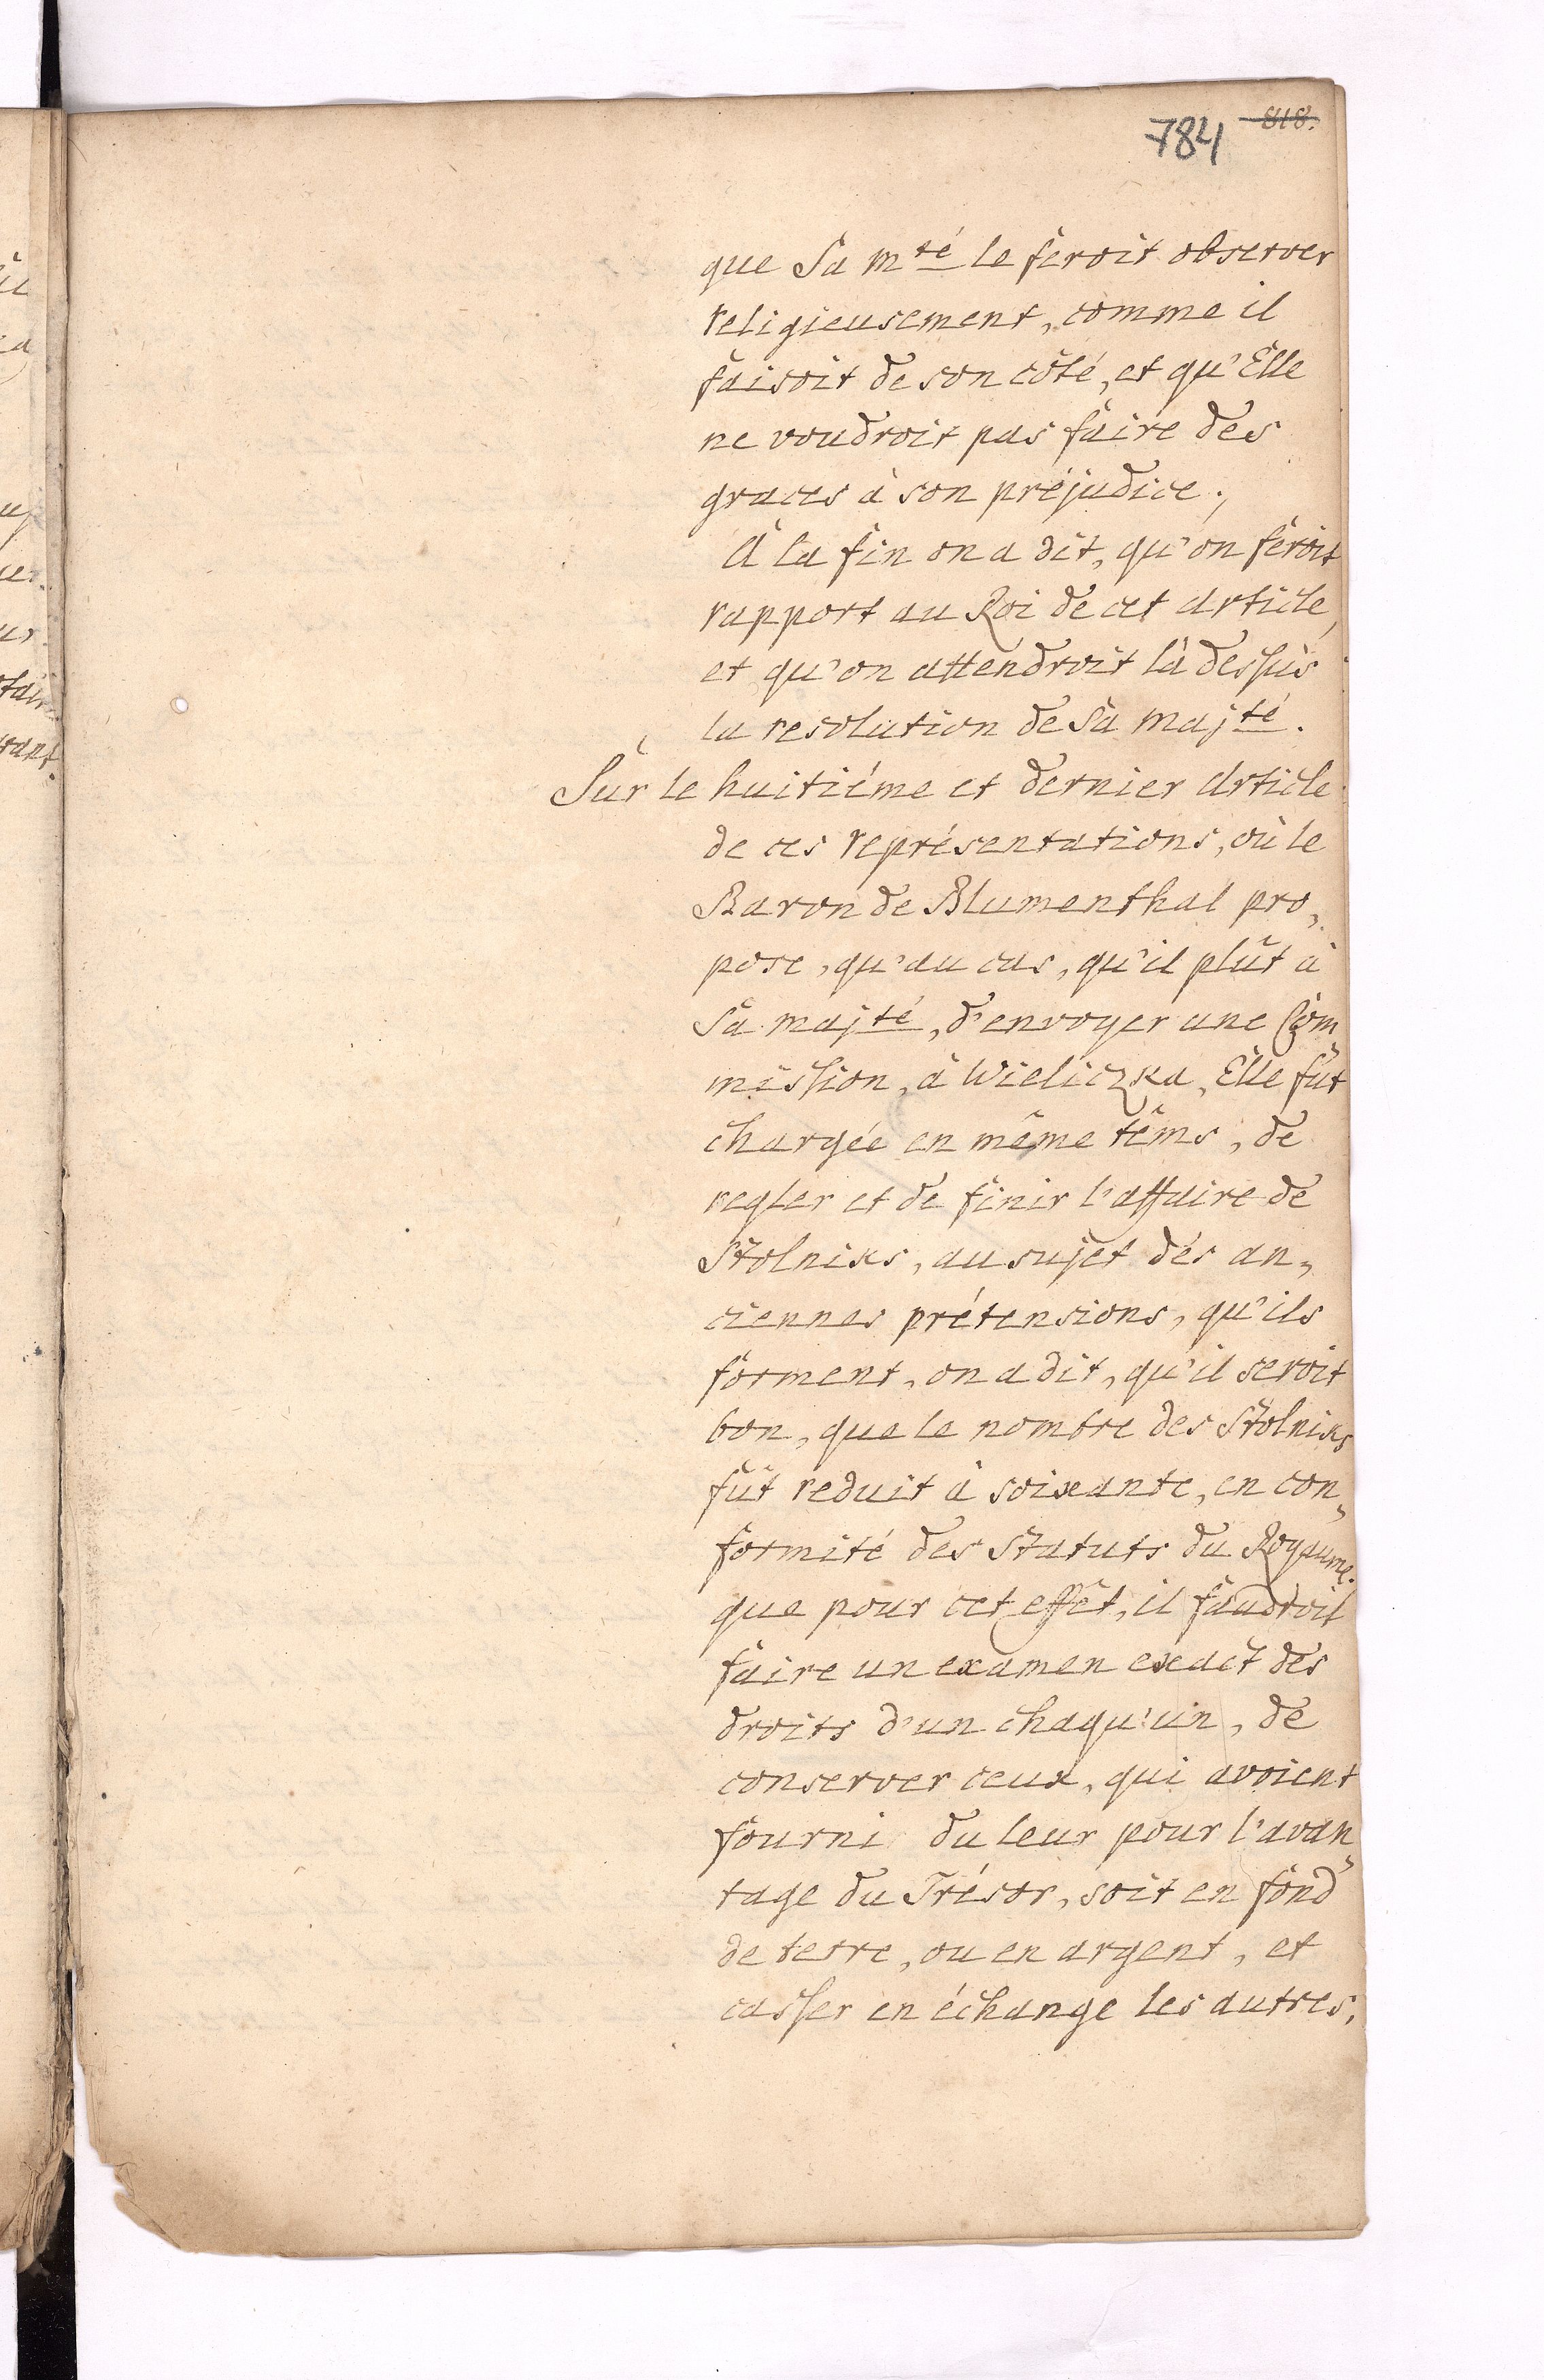 784 818.
que Sa Mté le feroit observer
religieusement, comme il
faisoit de son côté, et qu'Elle
ne voudroit pas faire des
graces à son préjudice.,
A la fin on a dit, qu'on feroit
rapport au Roi de cet Article,
et qu'on attendroit là dessus
la resolution de Sa Majté.
Sur le huitiéme et dernier Article
de ces représentations, où le
Baron de Blumenthal pro„
pose, qu'au cas, qu'il plût à
Sa Majté, d'envoyer une Com
mission, à Wieliczka, Elle fût
chargée en même têms, de
regler et de finir l'affaire de
Stolniks, au sujet dés an„
ciennes prétensions, qu'ils
forment, on a dit, qu'il seroit
bon, que le nombre des Stolniks
fût reduit à soixante, en con„
formité des Statuts du Royaume.
que pour cet effêt, il faudroit
faire un examen exact des
droits d'un chaqu'un, de
conserver ceux, qui avoient
fourni du leur pour l'avan„
tage du Trésor, soit en fond
de terre, ou en argent, et
casser en échange les autres,